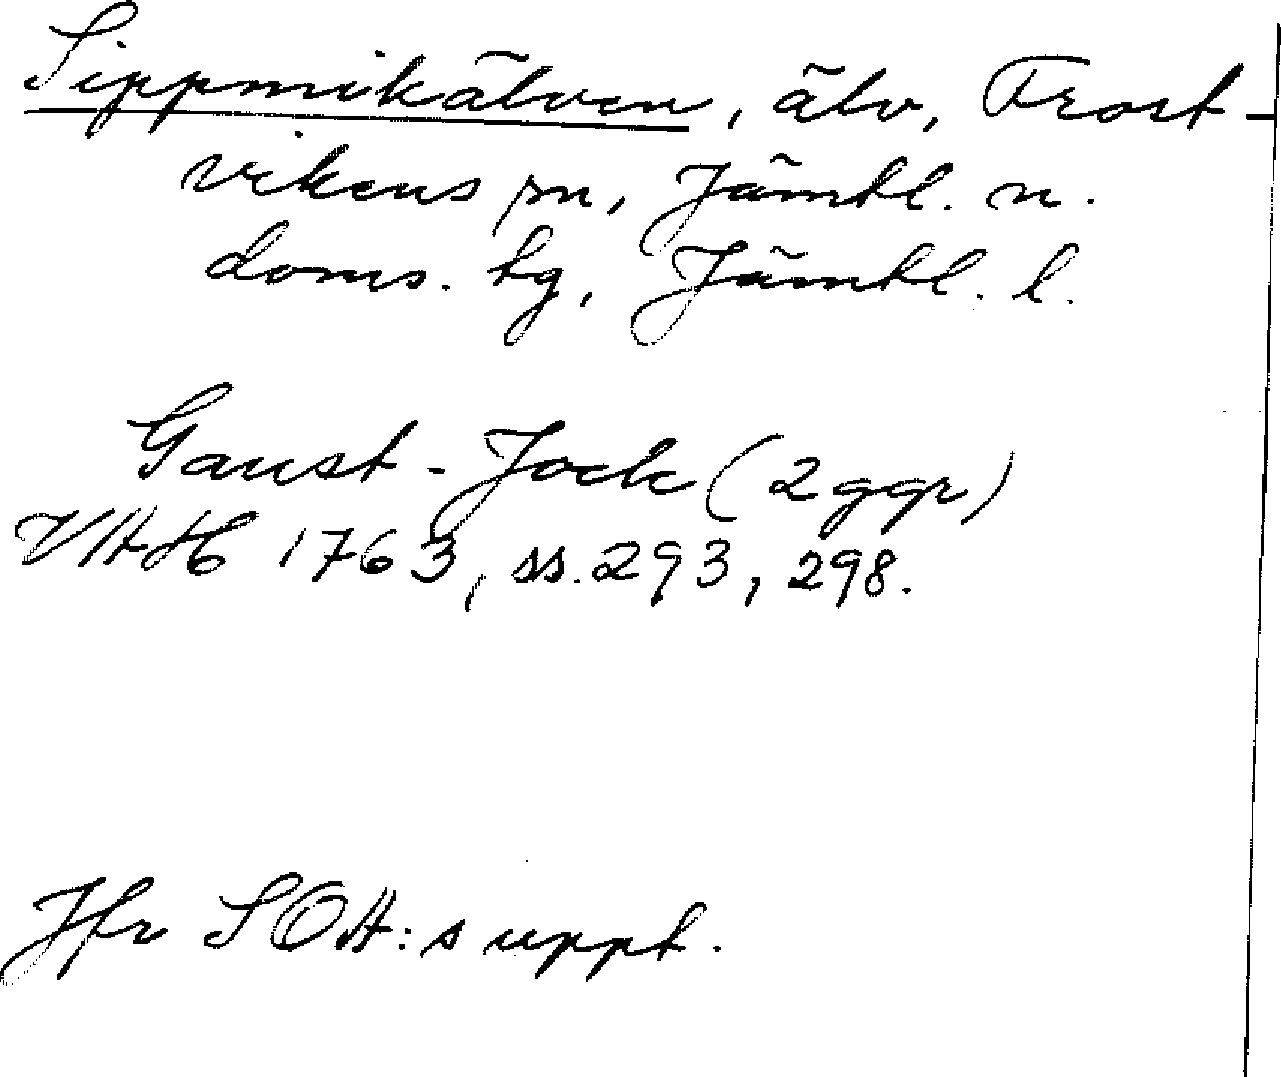 Sippmikälven, älv, Frost-
vikens sn, Jämtl. n.
doms. tg, Jämtl. l.
Gaust-Jock (2 ggr)
VHAH 1763, ss. 293, 298.
Jfr SOA:s uppt.